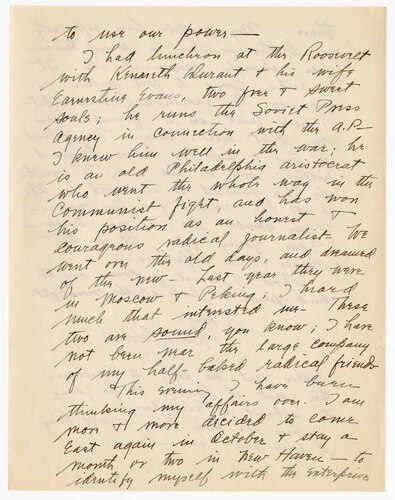 to use our power—
I had luncheon at the Roosevelt
with Kenneth Durant & his wife
Earnestine Evans, two free & sweet
souls; he runs the Soviet Press
Agency in connection with the A.P.—
I knew him well in the war; he
is an old Philadelphia aristocrat
who went the whole way in the
Communist fight, and has won
his position as an honest &
courageous radical journalist— We
went over the old days, and dreamed
of the new— Last year they were
in Moscow & Peking; I heard
much that interested me— These
two are sound, you know; I have
not been near the large company
of my half-baked radical friends
This evening I have been
thinking my affairs over. I am
more & more decided to come
East again in October & stay a
month or two in New Haven— to
identify myself with the enterprise